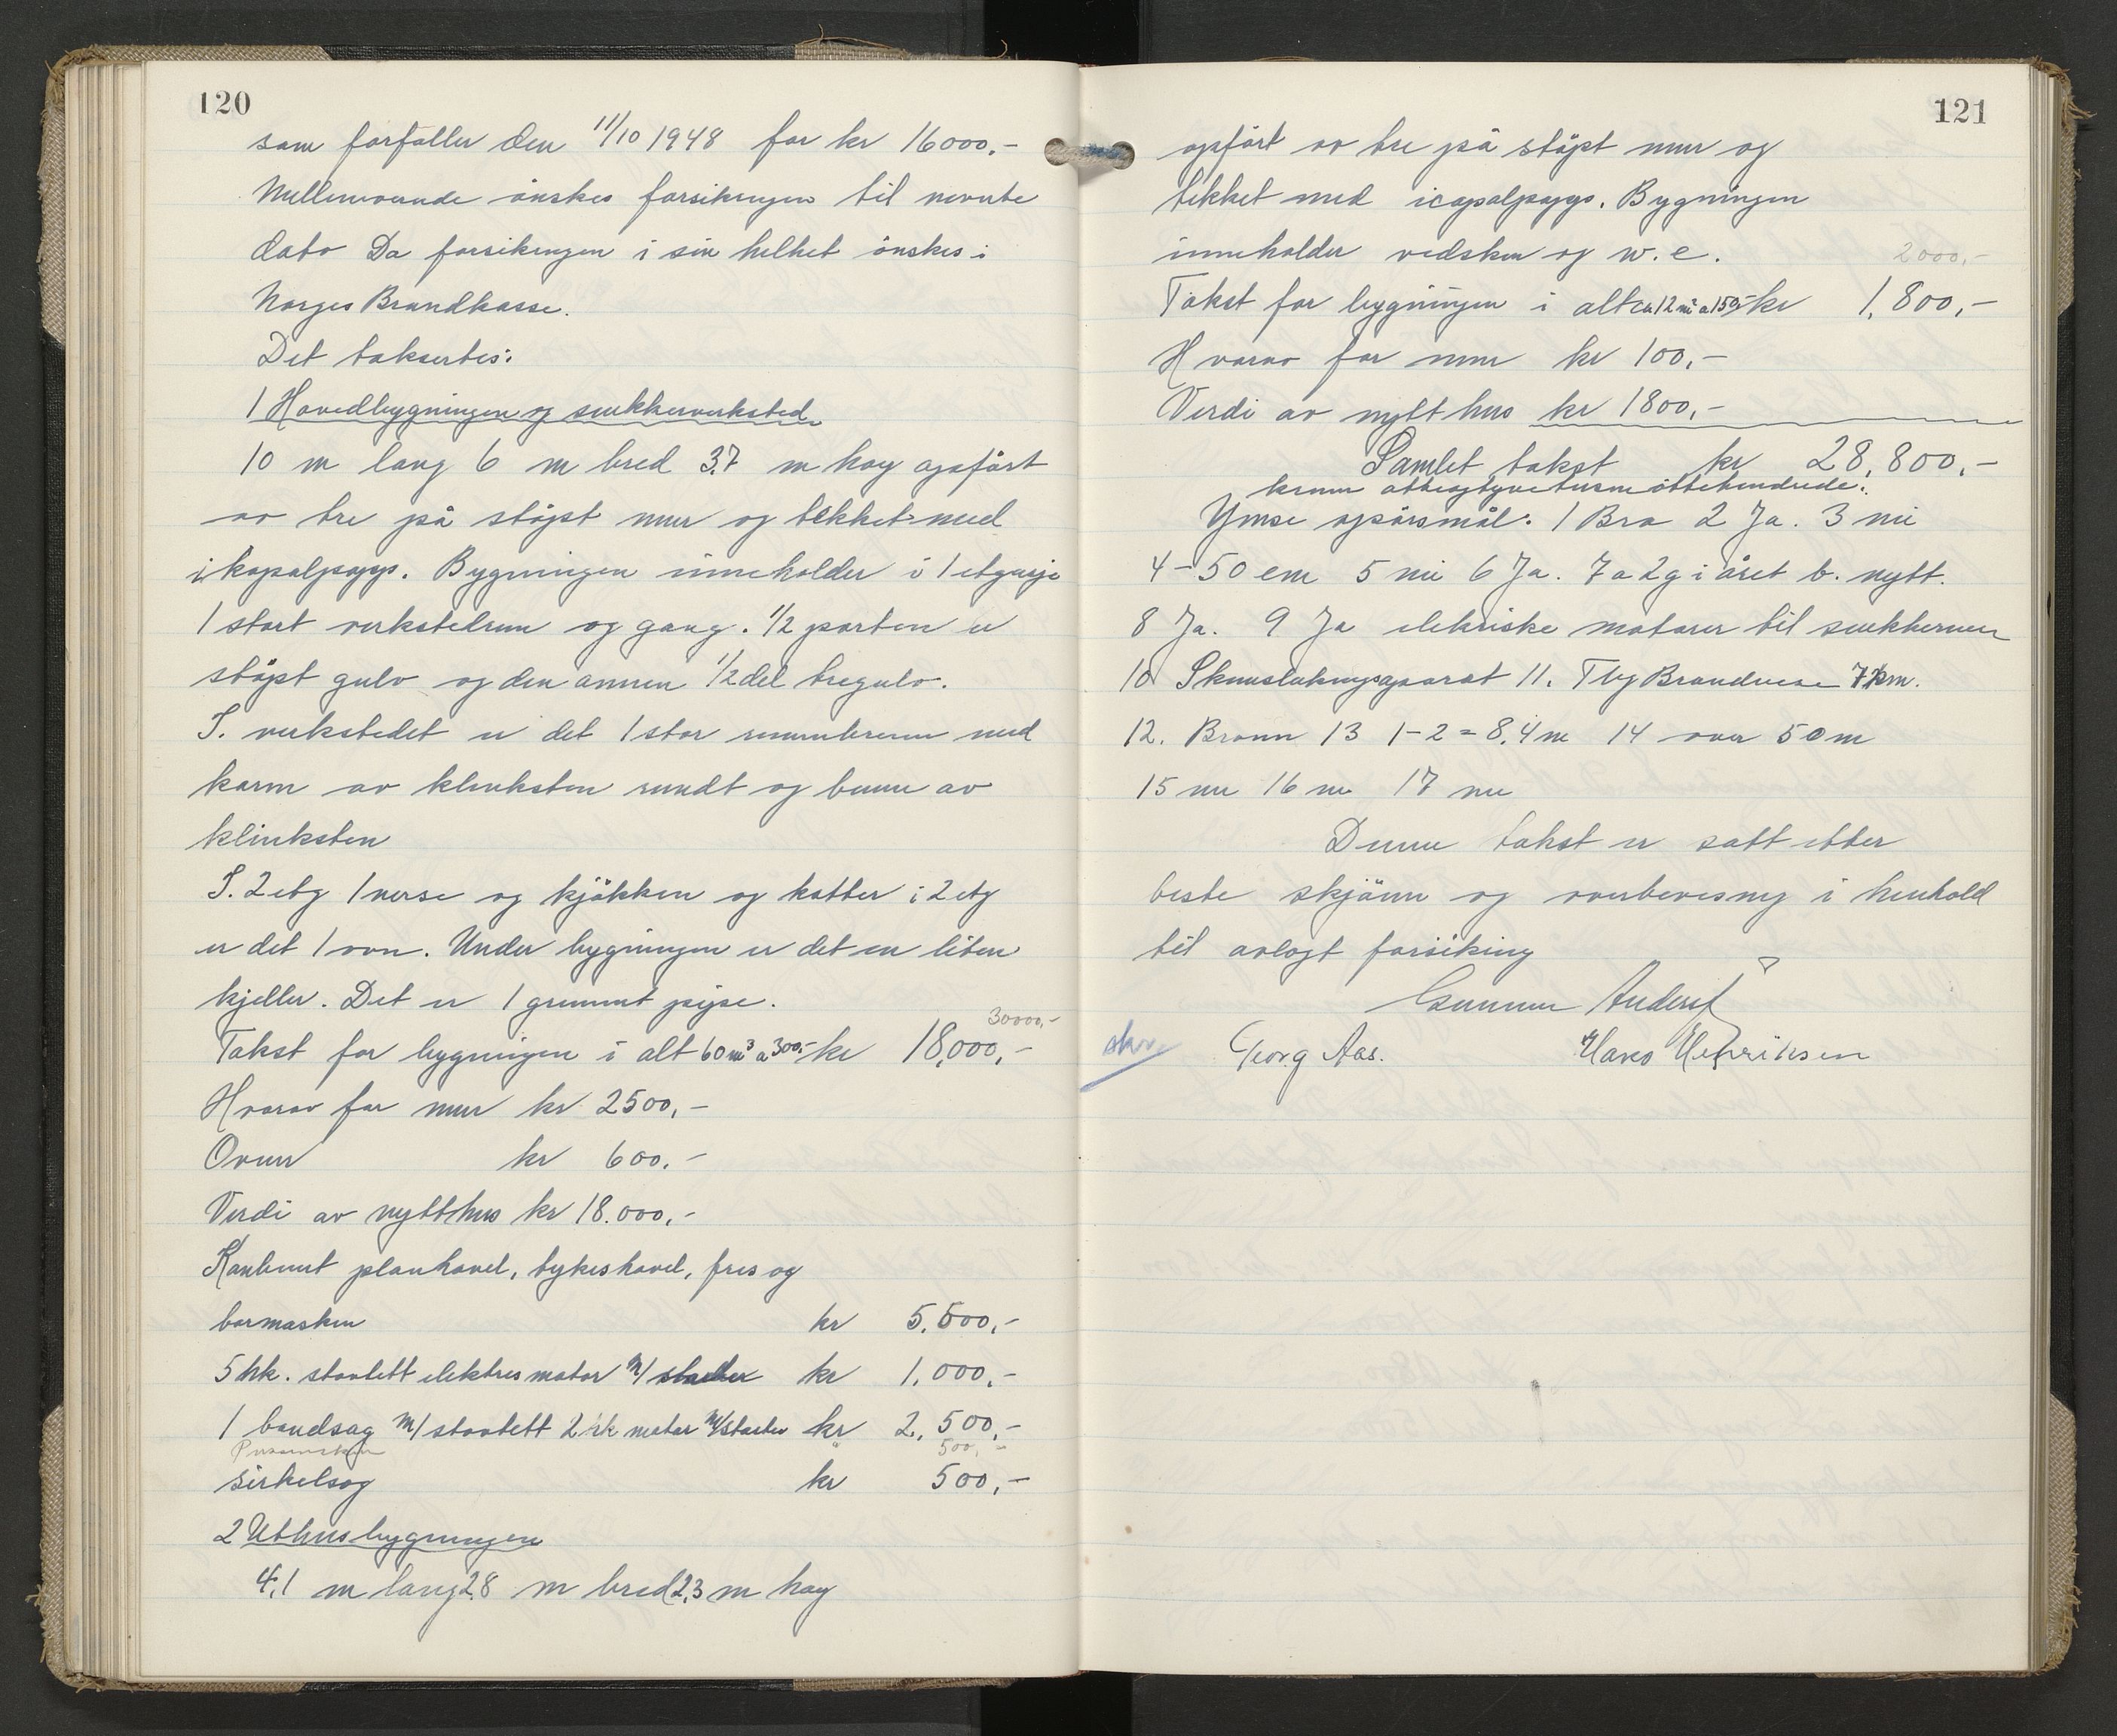 120
som forfaller den 11/10 1948 for kr 16000.-
Mellemverende önskes forsikringen til nevnte
dato Da forsikringen i sin helhet önskes i
Norges Brandkasse.
Det taksertes:
1 Hovedbygningen og snekkerverksted
10 m lang 6 m bred 3,7 m höy opfört
av tre på stöpt mur og tekket med
ikopalpapp. Bygningen inneholder i 1 etgasje
1 stort verkstedrum og gang. 1/2 parten er
stöpt gulv og den annen 1/2 del tregulv.
I. verkstedet er det 1 stor med
karm av klinksten rundt og bunn av
klinksten
I. 2 etg 1 verse og kjökken og kott i 2 etg
er det 1 ovn. Under bygningen er det en liten
kjeller. Det er 1 grunnmt pipe.
30000,-
Takst for bygningen i alt 60 m³ a 300,- kr 18,000,-
Hvorav for mur kr 2500,-
Ovner kr 600.-
Verdi av nytt hus kr 18.000,-
Kombinert planhövel, tykeshövel, fres og
bormaskin kr 5.500,-
5 hk. stövtett elektris motor m/ starter kr 1,000.-
1 bandsag m/ stövtett 2 hk motor m/ starter kr 2,500,-
500,-
sirkelsag kr 500,-
2 Uthusbygningen
4,1 m lang 2,8 m bred 2,3 m höy
121
opfört av tre på stöpt mur og
tekket med icopalpapp. Bygningen
inneholder vedskur og w.c.
2000,-
Takst for bygningen i alt ca 12 m² a 150,- kr 1,800,-
Hvorav for mur kr 100,-
Verdi av nytt hus kr 1800,-
Samlet takst kr 28,800,-
kroner åtteogtyvetusenåttehundrede.
Ymse spörsmål: 1 Bra 2 Ja. 3 nei
4 - 50 cm 5 nei 6 Ja. 7 a 2 g i året b. nytt.
8 Ja. 9 Ja elekriske motorer til snekkerver
10 Skumslukningsaparat 11. Tbg Brandvese 7 km.
12. Brönn 13 1-2 = 8,4 m 14 over 50 m
15 nei 16 nei 17 nei
Denne takst er satt etter
beste skjönn og overbevisning i henhold
til avlagt forsikring
Gunnar Anders
skrv.
Georg Aas. Hans Henriksen